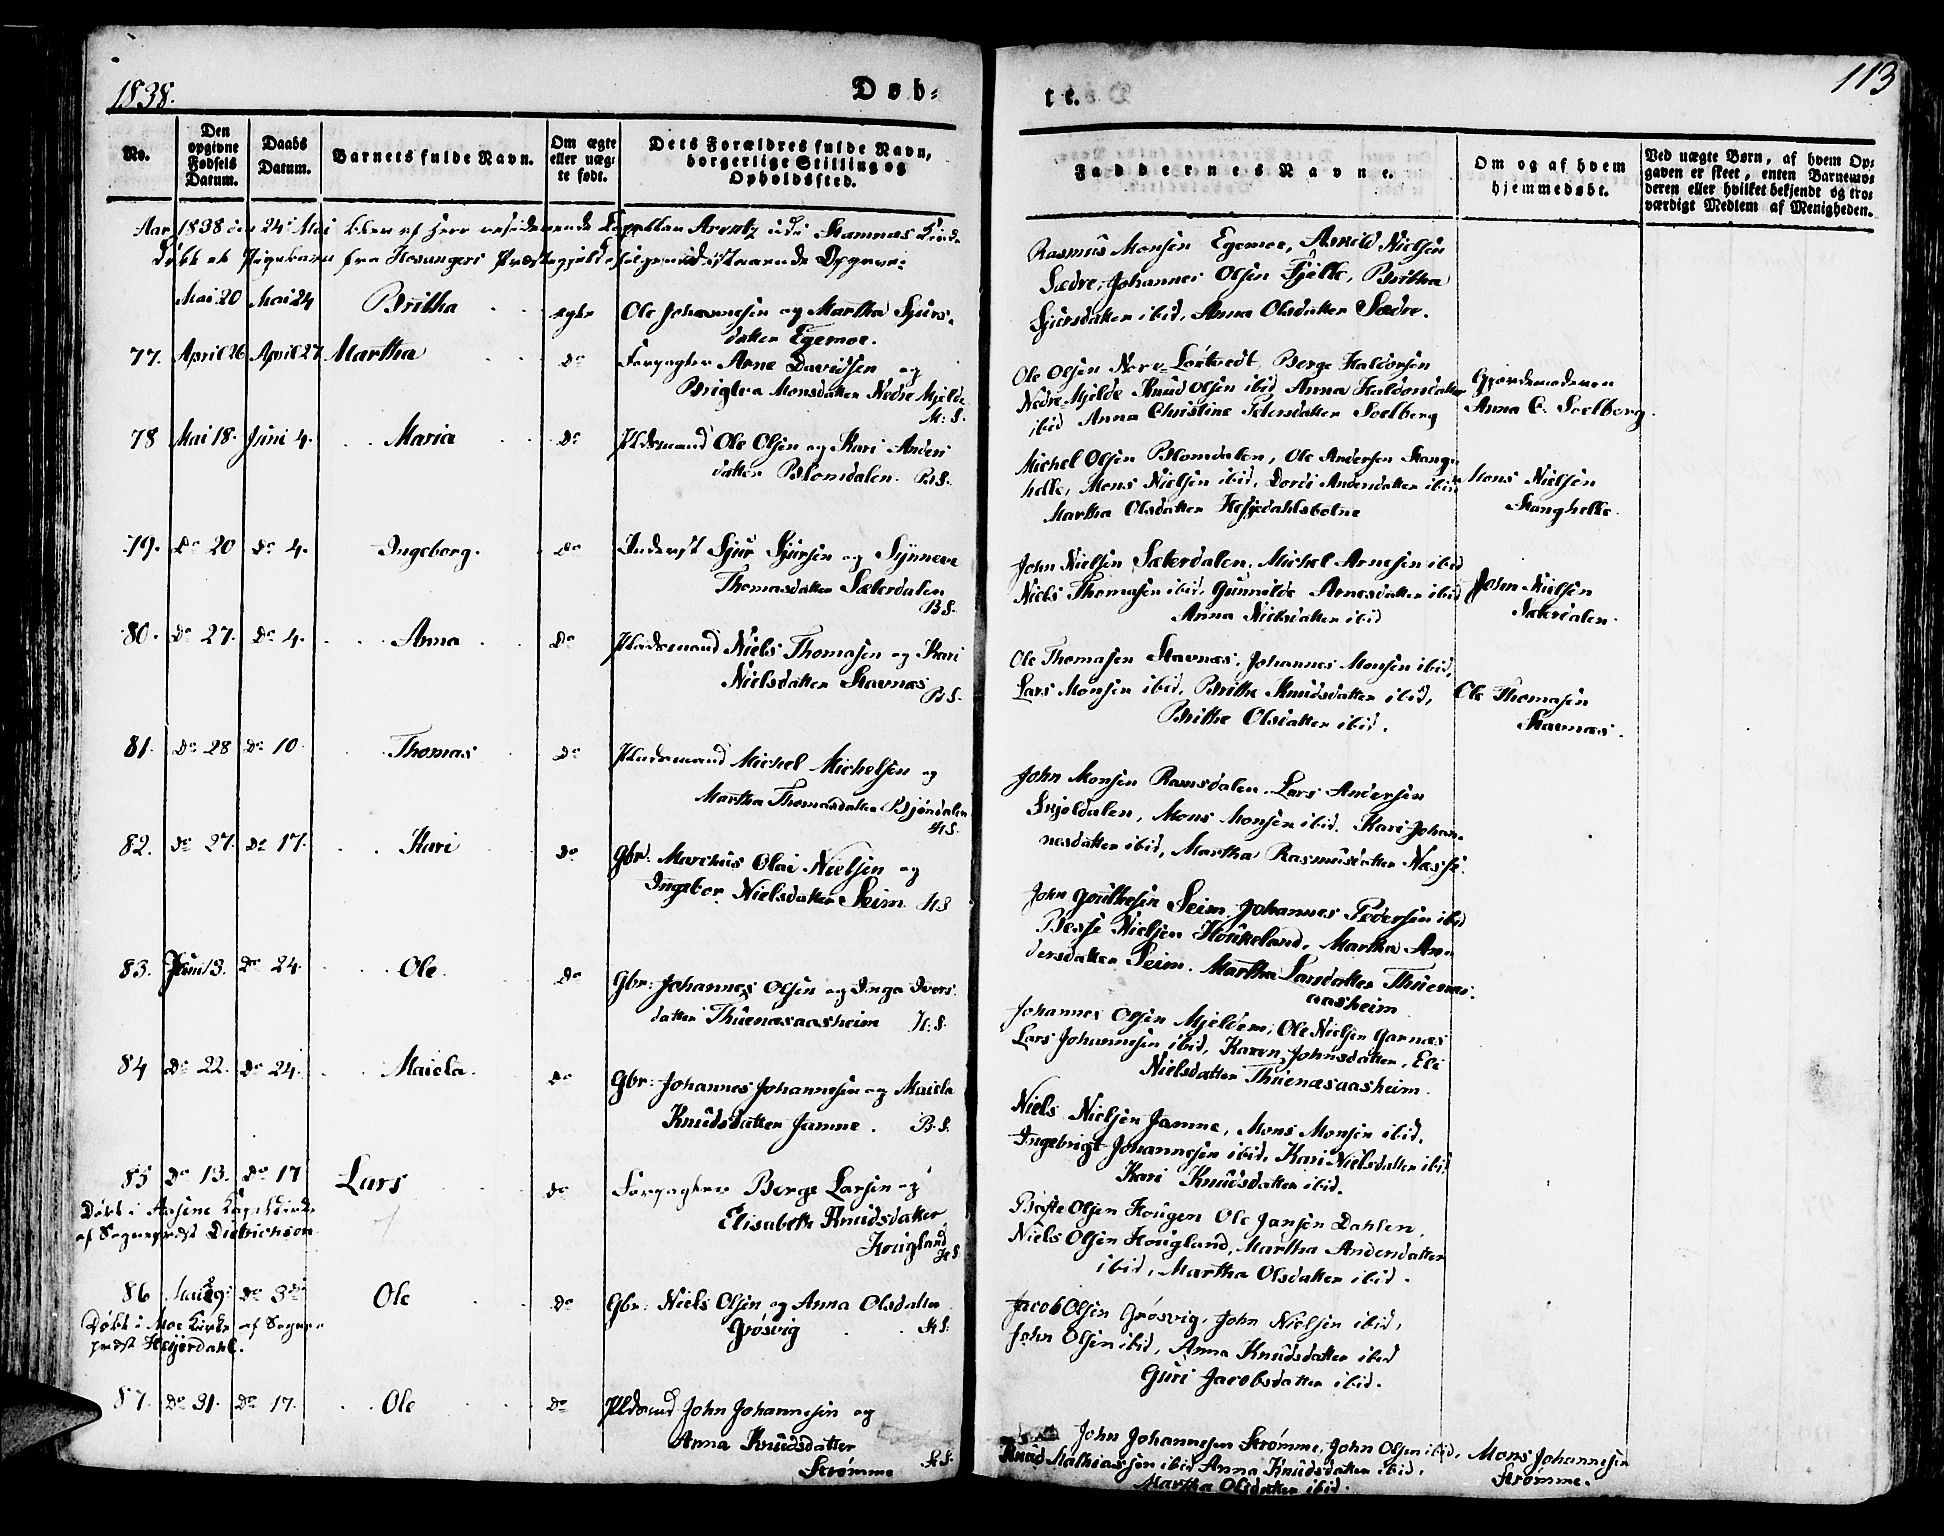 1838.
Døb-
te.
113
No.
Den opgivne Fødsels Datum.
Daabs Datum.
Barnets fulde Navn.
Om ægte eller uægte født.
Dets Forældres fulde Navn, borgerlige Stilling og Opholdssted.
Faddernes Navne.
Om og af hvem hjemmedøbt.
Ved uægte Børn, af hvem Opgaven er skeet, enten Barnemoderen eller hvilket bekjendt og troværdigt Medlem af Menigheden.
Aar 1838 den 24de Mai blev af Herr residerende Capellan Arentz udi Stamnæs Kirke
Døbt et Pigebarn fra Hosangers Præstegjeld
Mai 20 Mai 24 Britha ægte Ole Johannesen og Martha Sjurs-
datter Egemoe.
Rasmus Monsen Egemoe, Arnild Nielsen
Sædre, Johannes Olsen Fjelle, Britha
Sjursdatter ibid, Anna Olsdatter Sædre.
77. April 26 April 27 Martha do Forpagter Arne Davidsen og
Brigtva Monsdatter Nedre Mjelde
H. S.
Ole Olsen Nere Lostvedt, Berge Haldorsen
Nedre Mjelde Knud Olsen ibid Anna Haldorsdatter
ibid Anna Christine Petersdatter Soelberg
Gjordemoderen
Anna C. Soelberg.
78 Mai 18. Juni 4. Maria do Pladsmand Ole Olsen og Kari Anders
datter Blomdalen. B S.
Michel Olsen Blomdalen, Ole Andersen Stang-
helle, Mons Nielsen ibid, Dordi Andersdatter ibid
Martha Olsdatter Hesjedahlsbotne
Mons Nielsen
Stanghelle.
79. Do 20 Do 4. Ingeborg. do Inderst Sjur Sjursen og Synneve
Thomasdatter Sæterdalen
B S.
John Nielsen Sæterdalen, Michel Arnesen ibid
Niels Thomasen ibid, Gunnilde Arnesdatter ibid
Anna Nielsdatter ibid
John Nielsen
Sæterdalen.
80. Do 27. Do 4. Anna do Pladsmand Niels Thomasen og Kari
Nielsdatter Stavnæs
B S.
Ole Thomasen Stavnæs, Johannes Monsen ibid,
Lars Monsen ibid, Brithe Knudsdatter ibid,
Brithe Olsdatter ibid.
Ole Thomasen
Stavnæs.
81. Do 28 Do 10. Thomas do Pladsmand Michel Michelsen og
Martha Thomasdatter Bjøndalen
H S.
John Monsen Ramsdalen, Lars Andersen
Skjeldalen, Mons Monsen ibid. Kari Johan-
nesdatter ibid, Martha Rasmusdatter Næsse.
82. Do 27. Do 17. Kari do Gbr. Marthus Olai Nielsen og
Ingebor Nielsdatter Seim. H S
John Gouthesen Seim, Johannes Pedersen ibid
Besse Nielsen Houkeland, Martha An-
dersdatter Seim. Martha Larsdatter Thuenæs-
aasheim
83. Juni 3. Do 24. Ole. do Gbr: Johannes Olsen og Inga Ivers
datter Thuenæsaasheim H. S.
Johannes Olsen Mjeldem, Ole Nielsen Garnæs
Lars Johannesen ibid, Karen Johnsdatter, Eli
Nielsdatter Thuenæsaasheim.
84 Do 22. Do 24. Maiela. do Gbr: Johannes Johannesen og Maiela
Knudsdatter Jamne. B. S.
Niels Nielsen Jamne, Mons Monsen ibid,
Ingebrigt Johannesen ibid, Kari Nielsdatter ibid
Kari Knudsdatter ibid.
85 Do 13. Do 17 Lars do Forpagter Berge Larsen og
Elisabeth Knudsdatter
Hougland
H S.
Døbt i Aasene Capel Kirke
af Sognepræst Dietrichson
Olsen Hougen Ole Jansen Dahlen,
Niels Olsen Hougland, Martha Andersdatter
ibid, Martha Olsdatter ibid.
86 Mai 29 Do 3die Ole do Gbr: Niels Olsen og Anna Olsdatter
Grøsvig H S.
Døbt i Moe Kirke af Sogne-
præst Heyerdahl.
Jacob Olsen Grøsvig, John Nielsen ibid,
John Olsen ibid, Anna Knudsdatter ibid
Guri Jacobsdatter ibid.
87. Do 31. Do 17. Ole do Pldsmd John Johannesen og
Anna Knudsdatter
Strømme
H S.
John Johannesen Strømme, John Olsen ibid,
Knud Mathiassen ibid Anna Knudsdatter ibid,
Martha Olsdatter ibid.
Mons Johannesen
Strømme.